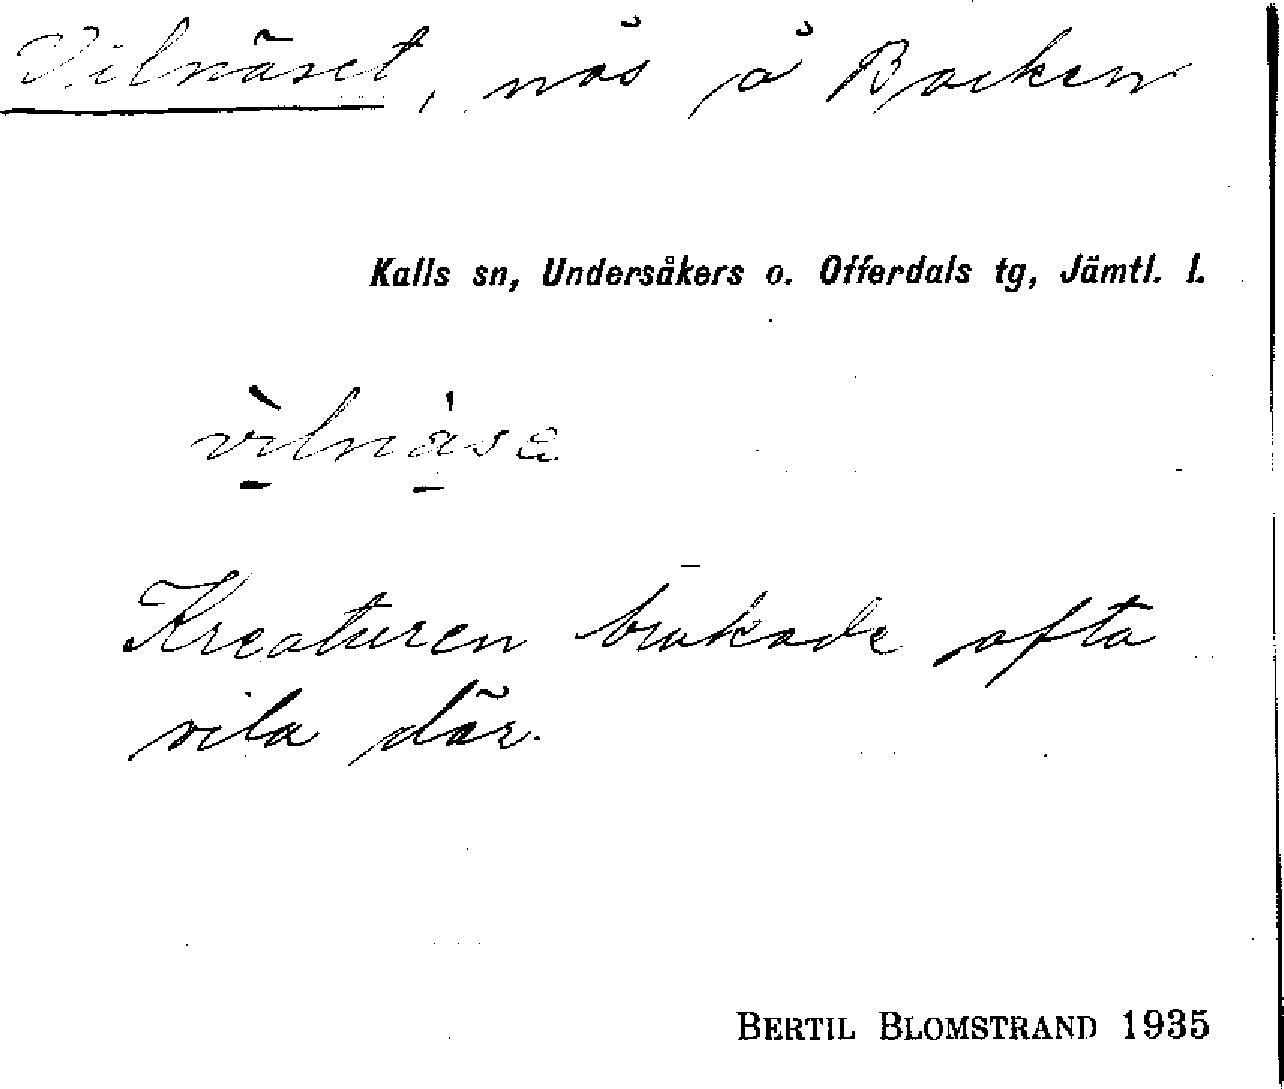 Vilnäset, näs å Backen
Kalls sn, Undersåkers o. Offerdals tg, Jämtl. l.
Kreaturen brukade ofta
vila där.
BERTIL BLOMSTRAND 1935